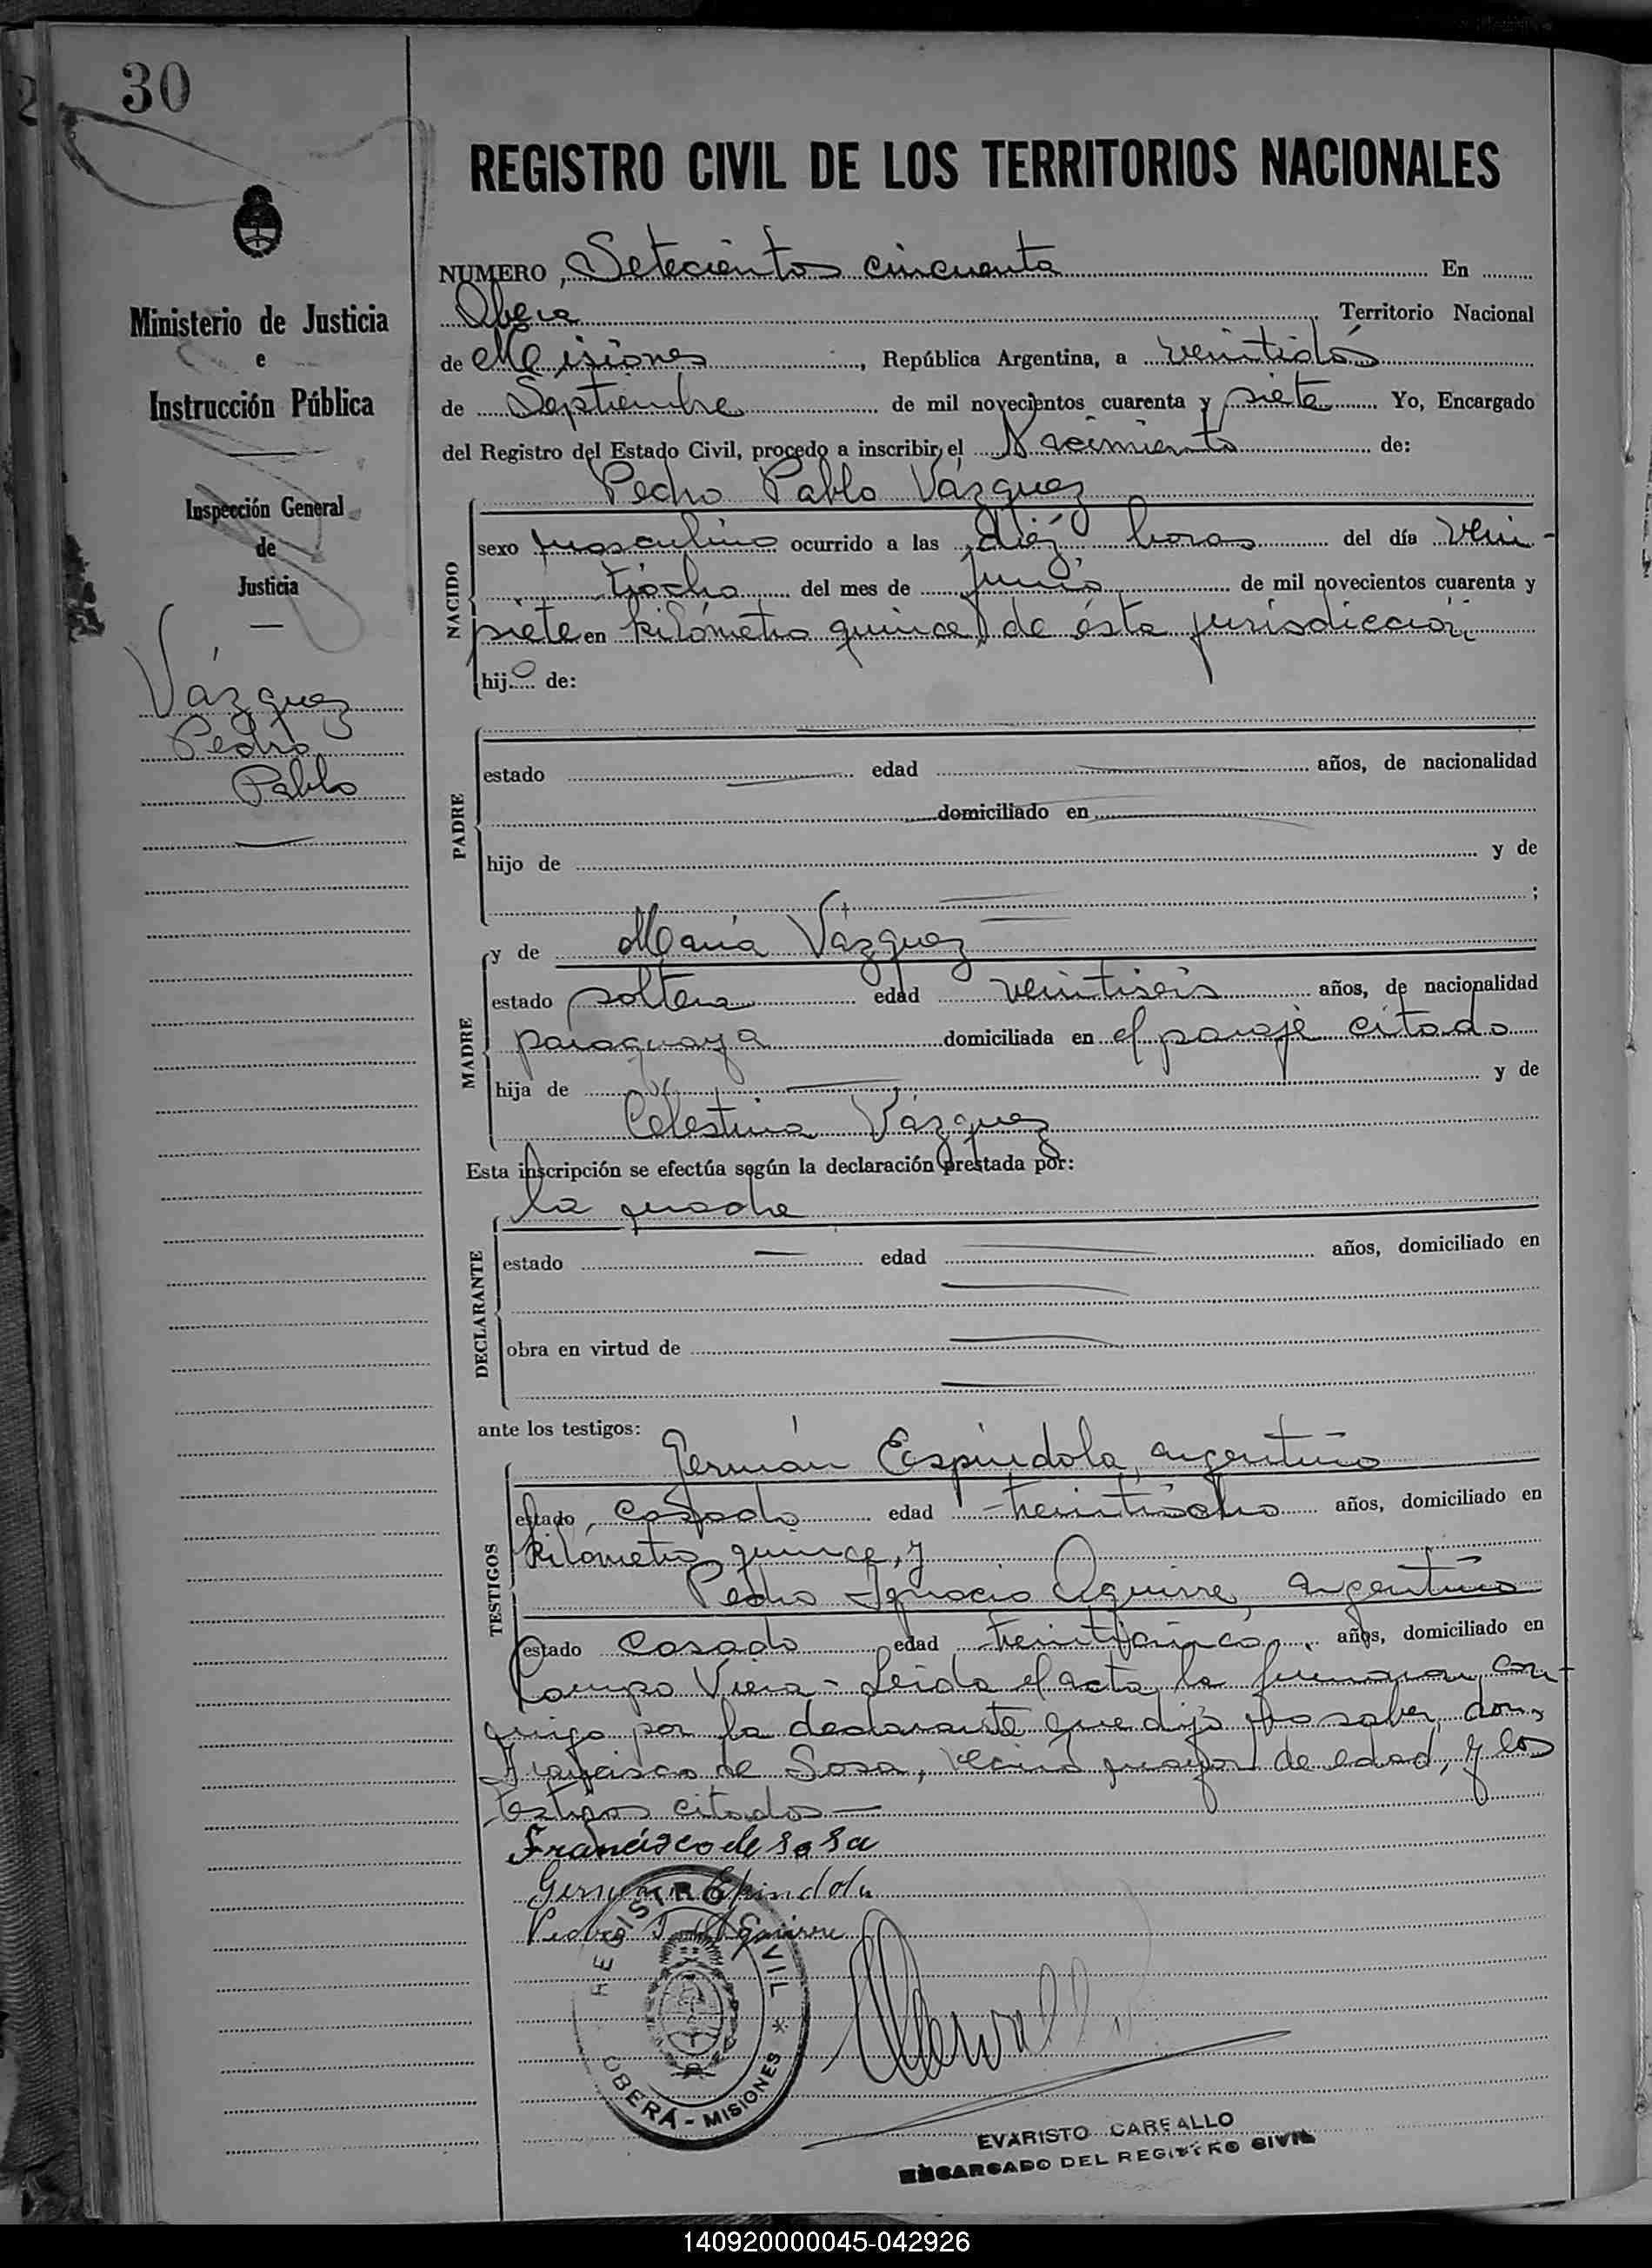 30
REGISTRO CIVIL DE LOS TERRITORIOS NACIONALES
Ministerio de Justicia
e
Instrucción Pública
Inspección General
de
Justicia
Vázquez
Pedro
Pablo
NUMERO Setecientos cincuenta En
Oberá Territorio Nacional
de Misiones, República Argentina, a veintidós
de Septiembre de mil novecientos cuarenta y siete Yo, Encargado
del Registro del Estado Civil, procedo a inscribir el Nacimiento de:
Pedro Pablo Vázquez
NACIDO
sexo masculino ocurrido a las diéz horas del día vein-
tiocho del mes de Junio de mil novecientos cuarenta y
siete en kilómetro quince de ésta jurisdicción
hijo de:
PADRE
estado edad años, de nacionalidad
domiciliado en
hijo de y de
;
MADRE
y de María Vázquez
estado soltera edad veintiseis años, de nacionalidad
paraguaya domiciliada en el paraje citado
hija de y de
Celestina Vázquez
Esta inscripción se efectúa según la declaración prestada por:
la madre
DECLARANTE
estado edad años, domiciliado en
obra en virtud de
ante los testigos:
TESTIGOS
Germán Espíndola, argentino
estado casado edad treintiocho años, domiciliado en
kilómetro quince, y
Pedro Ignacio Aguirre, argentino
estado casado edad treinticinco años, domiciliado en
Campo Viera - Leida el acta, la firmaron con-
migo por la declarante que dijo no saber, don
Francisco de Sosa, vecino mayor de edad, y los
testigos citados -
Francisco de Sosa
German Espindola
Pedro I Aguirre
REGISTRO CIVIL
OBERÁ - MISIONES
EVARISTO CARBALLO
ENCARGADO DEL REGISTRO CIVIL
140920000045-042926